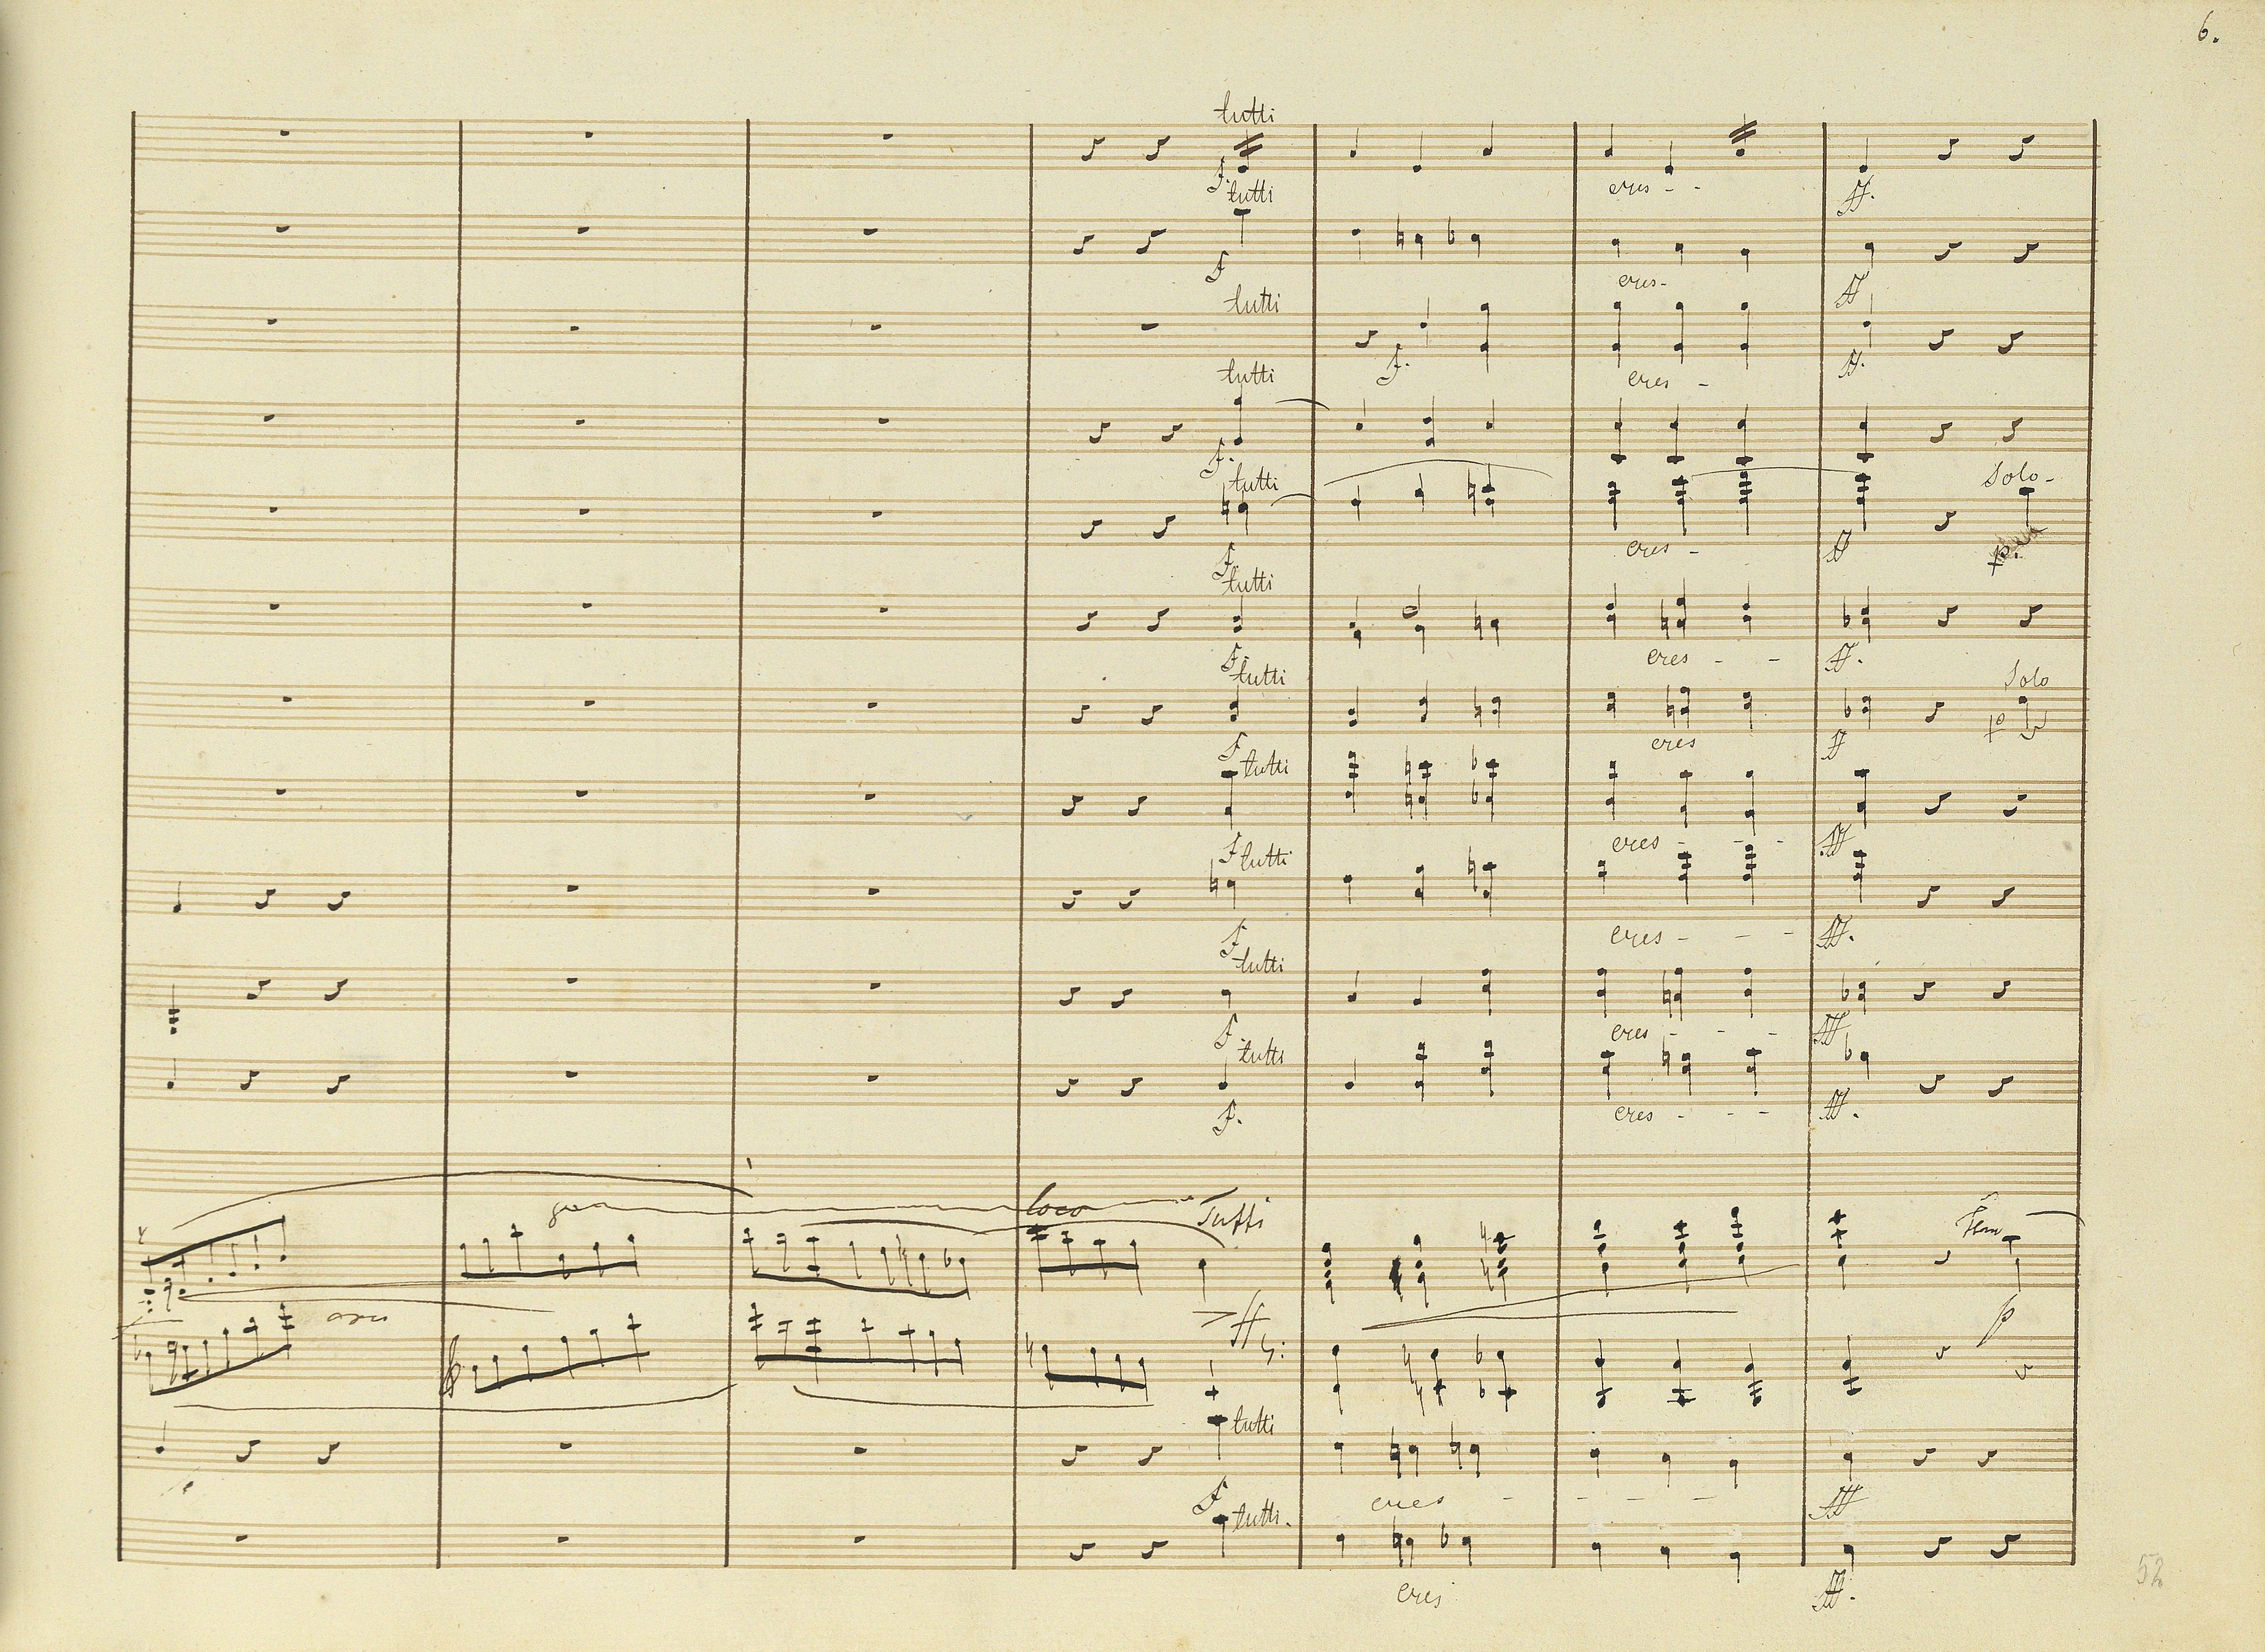 6.
tutti
f. tutti
cres - -
ff.
f
cres-
ff
tutti
f.
ff.
tutti
cres -
f.
tutti
Solo-
f.
cres -
ff
p.
tutti
f. tutti
cres - -
ff.
Solo
f
cres
ff
p
tutti
f tutti
cres - - -
ff
f
cres - - -
ff.
tutti
f.
cres - - -
ff
tutti
f.
cres - - -
ff.
8va
loco
Tutti
cres
ff
p
tutti
f
cres - - - - -
ff
tutti.
cres
ff.
52